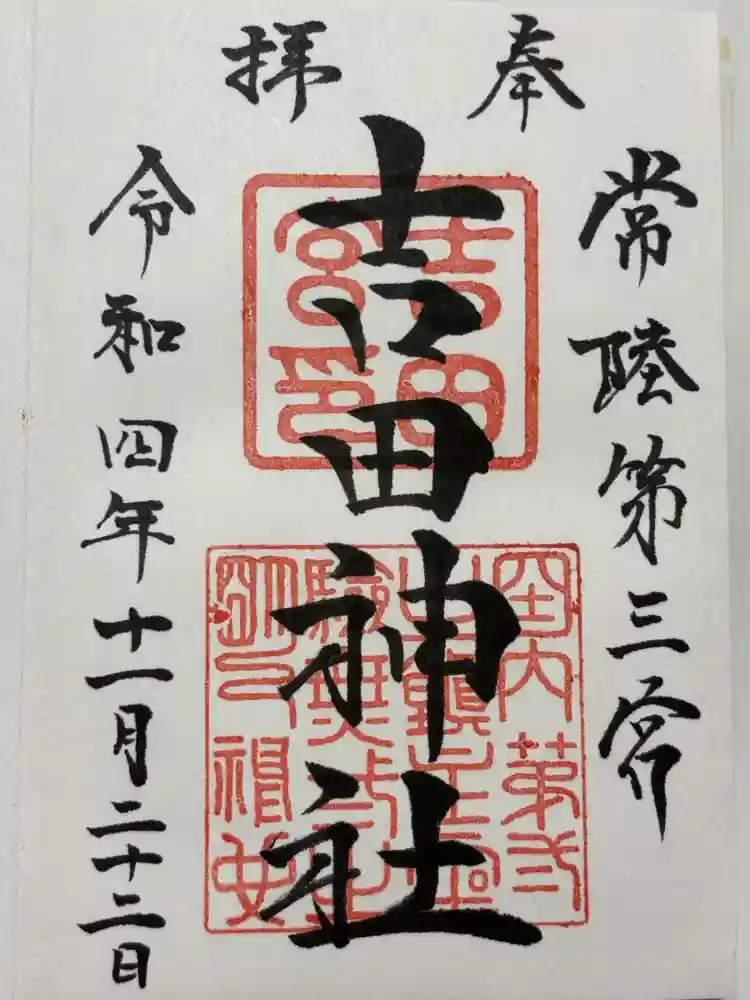 奉拝
常陸第三宮
吉田神社
令和四年十一月二十三日
吉田
宮印